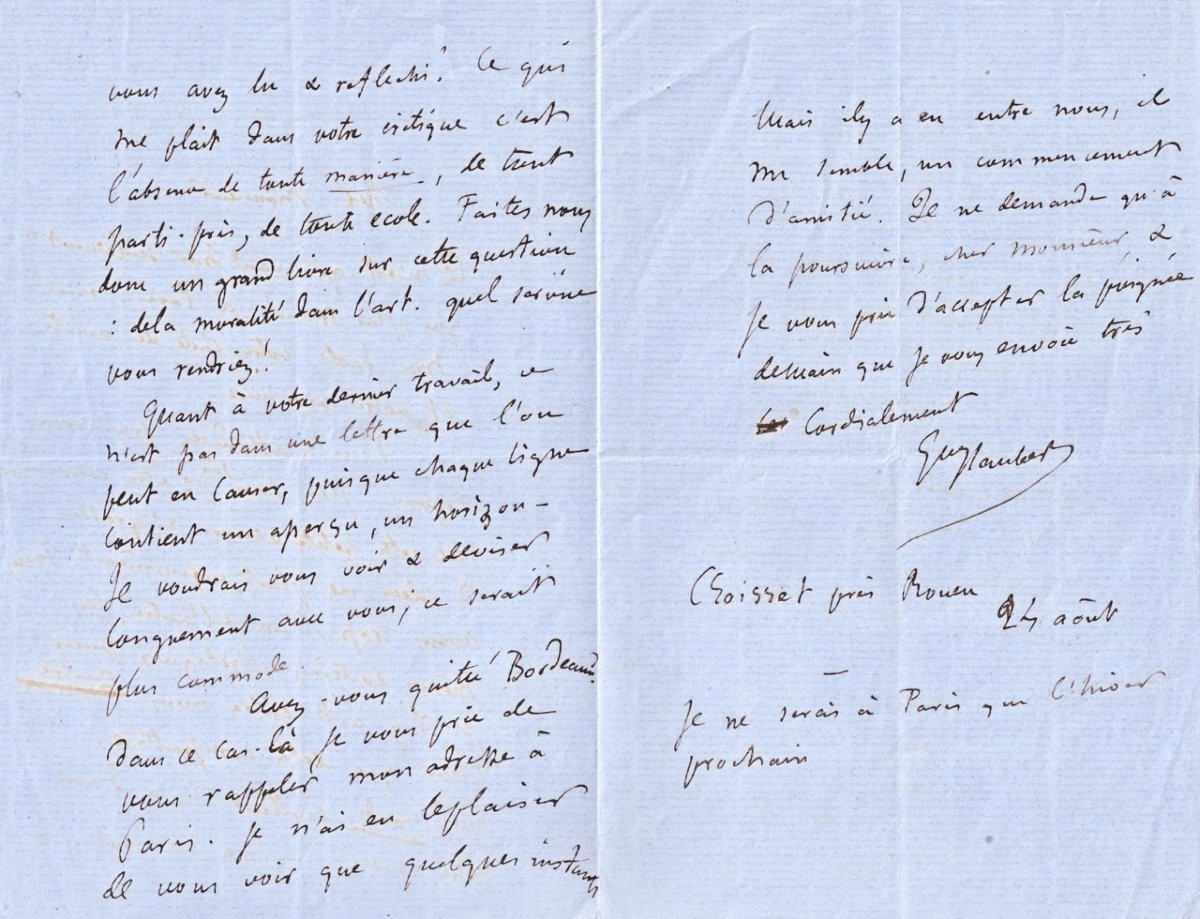 vous avez lu & reflechi! Ce qui
me plait dans votre critique c'est
l'absence de toute manière, de tout
parti-pris, de toute ecole. Faites nous
donc un grand livre sur cette question
: dela moralité dans l'art. quel service
vous rendriez!
Quant à votre dernier travail, ce
n'est pas dans une lettre que l'on
peut en causer, puisque chaque ligne
contient un aperçu, un horizon –
Je voudrais vous voir & deviser
longuement avec vous; ce serait
plus commode.
Avez-vous quitté Bordeaux?
Dans ce cas-là je vous prie de
vous rappeler mon adresse à
Paris. je n'ai eu leplaisir
de vous voir que quelques instants
Mais ily a eu entre nous, il
me semble, un commencement
d'amitié. Je ne demande qu'à
la poursuivre, cher monsieur, &
Je vous prie d'accepter la poignée
demain que je vous envoie très
Cordialement
GveFlaubert
Croisset près Rouen
24 août
–
Je ne serai à Paris que l'hiver
prochain